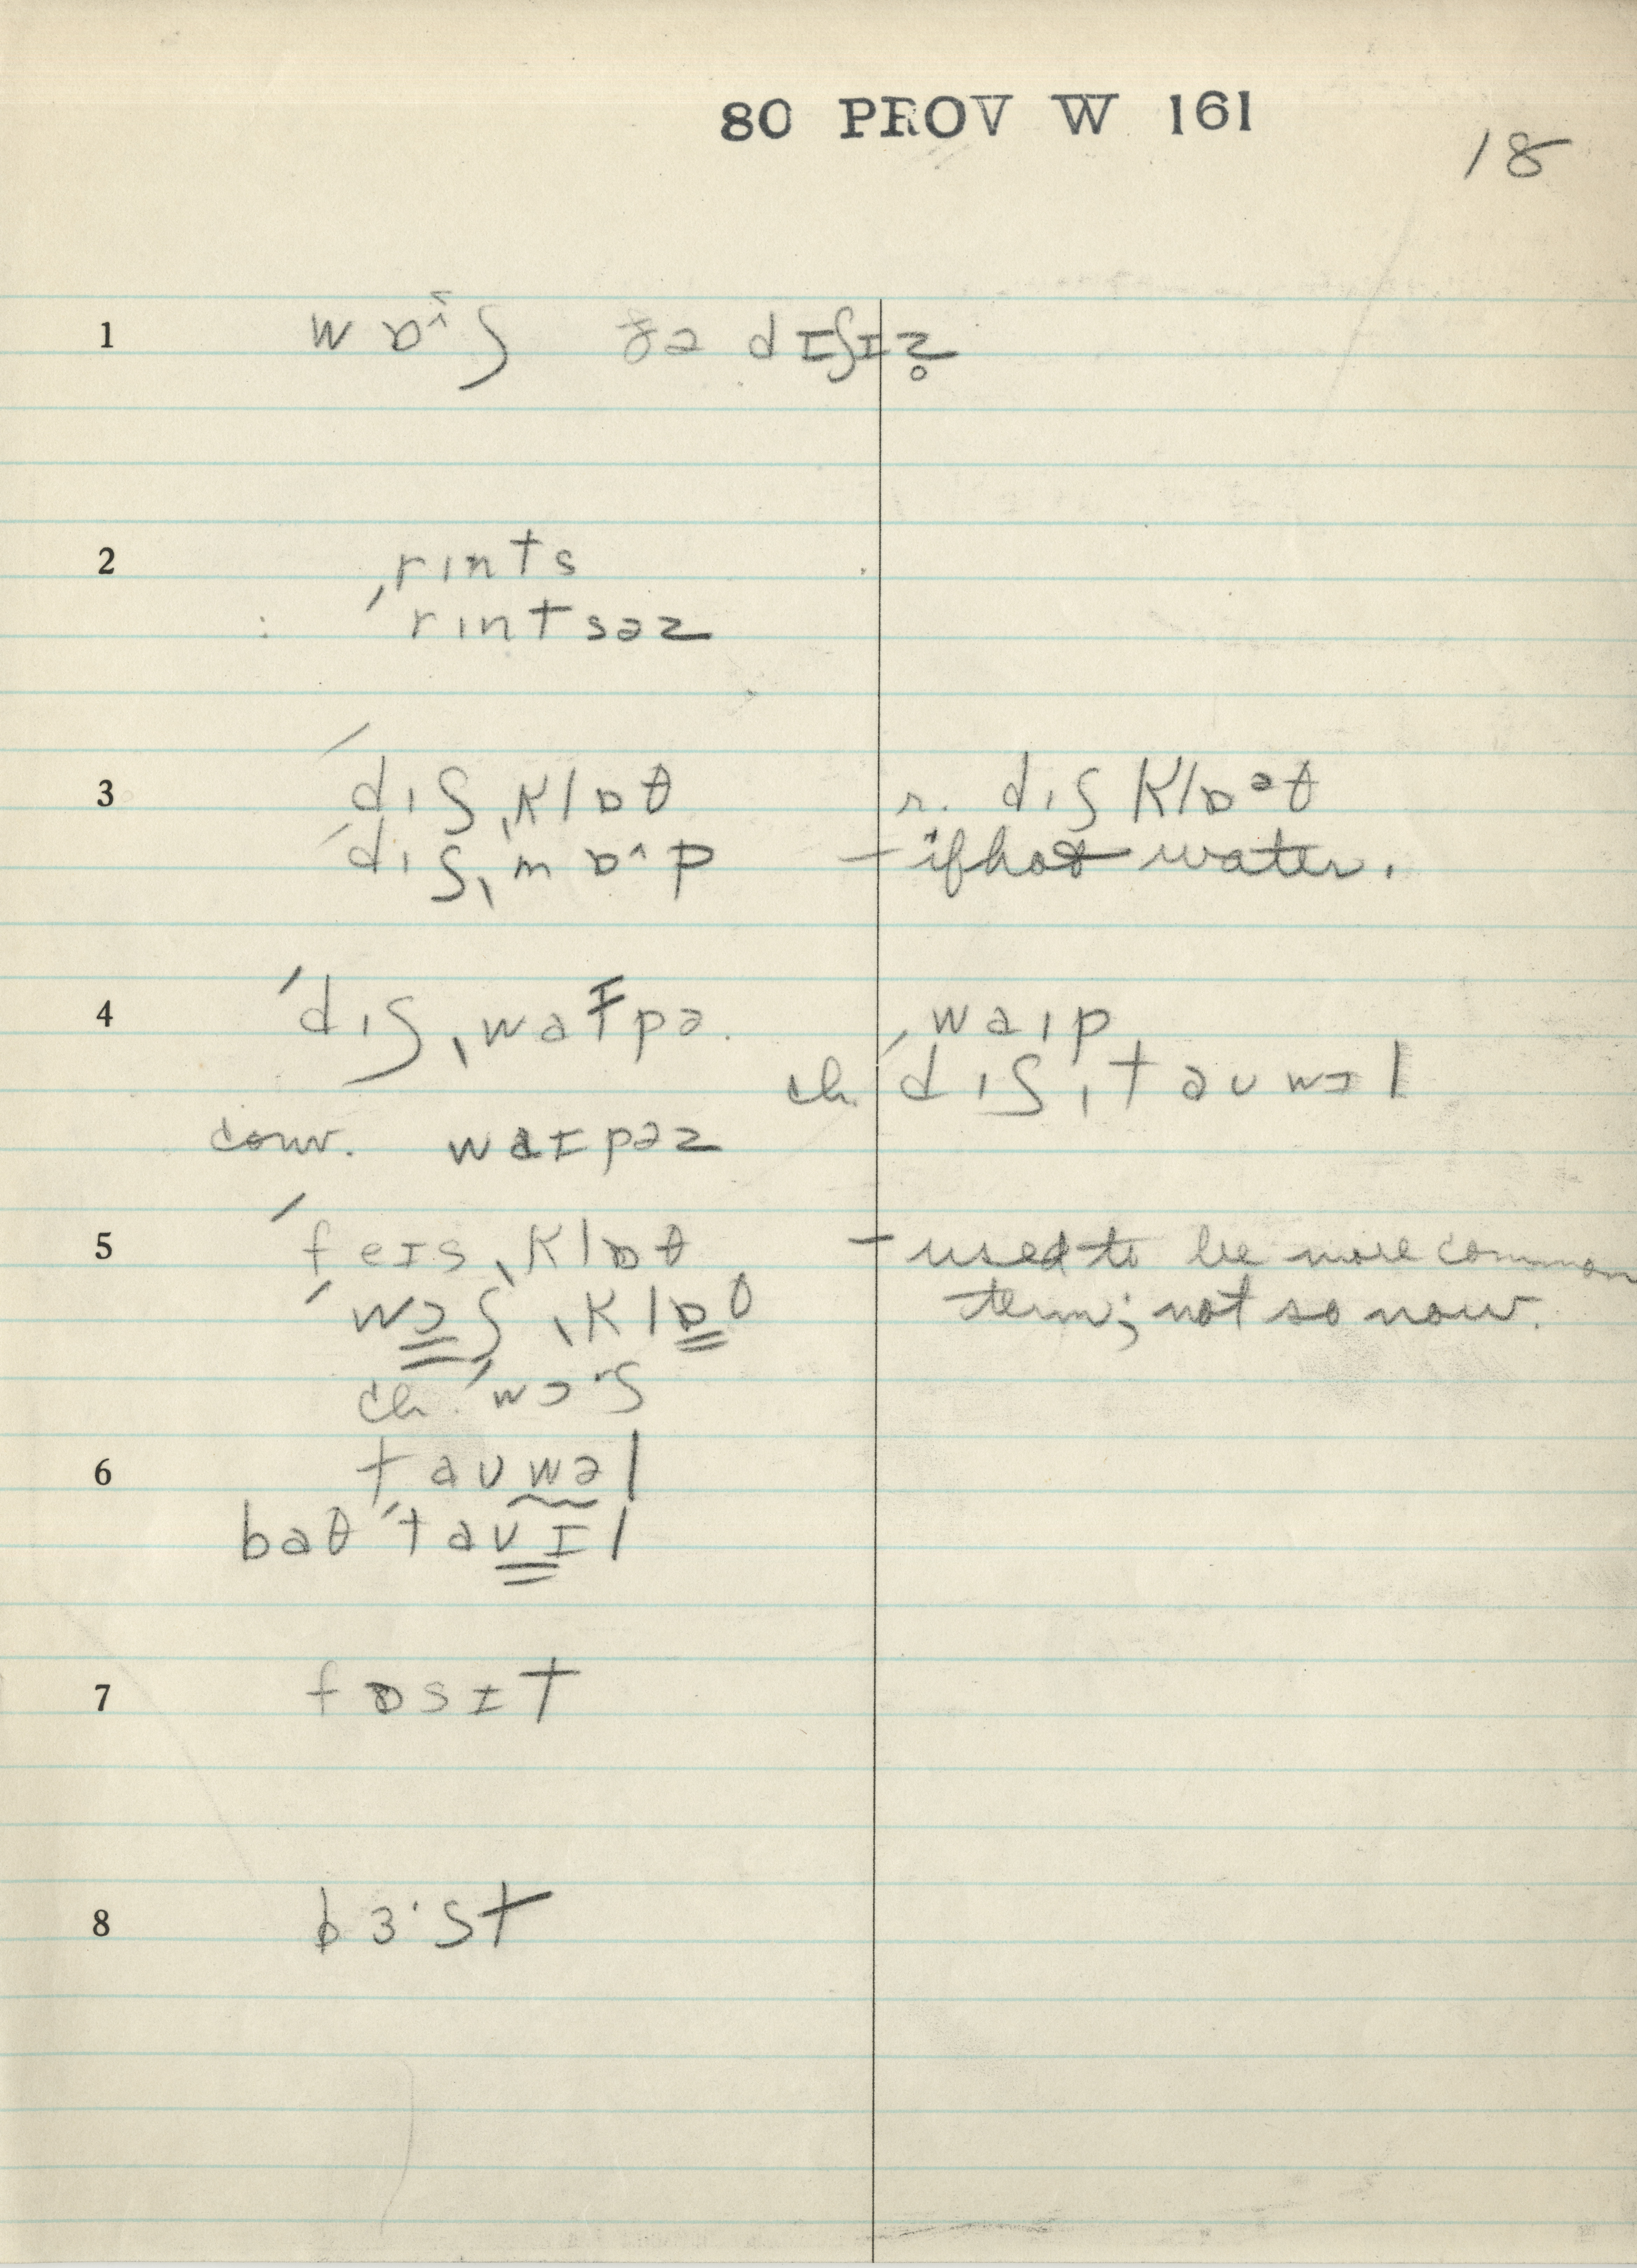 80 PROV W 161
18
1 wɒ^ʃ ðə dɪʃɪz̥
2 ˌrɪnts
ˈrɪntsəz
3 ˈdɪʃˌklɒθ r. dɪʃklɒᵊθ
ˈdɪʃˌmɒ^p – if hot water.
4 ˈdɪʃˌwaɪpə. ˌwaɪp
ch. ˈdɪʃˌtauwəl
conv. waɪpəz
5 ˈfeɪsˌklɒθ – used to be more common
ˈwɔʃˌklɒθ term; not so now.
ch. ˈwɔ·ʃ
6 tauwəl
baθ ˈtaʊɪl
7 fɒsɪt
8 bɜ·st